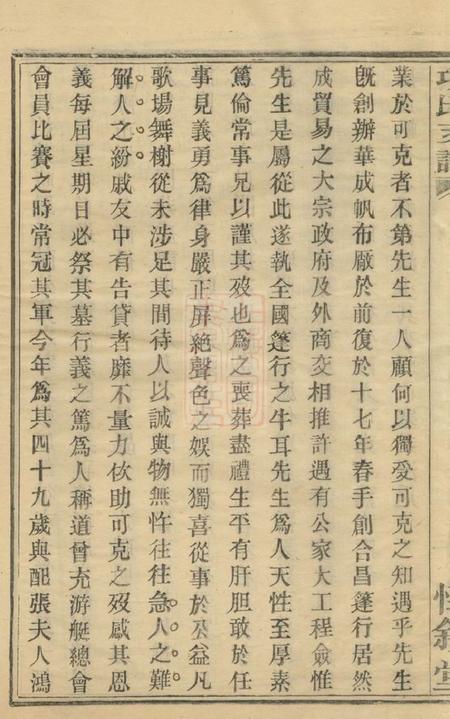 業於可克者不第先生一人顧何以獨受可克之知遇乎先生
旣創辦華成帆布廠於前復於十七年春手創合昌篷行居然
成貿易之大宗政府及外商交相推許遇有公家大工程僉惟
先生是屬從此遂執全國篷行之牛耳先生爲人天性至厚素
篤倫常事兄以謹其歿也爲之喪葬盡禮生平有肝胆敢於任
事見義勇爲律身嚴正屏絕聲色之娛而獨喜從事於公益凡
歌場舞榭從未涉足其間待人以誠與物無忤往往急人之難
解人之紛戚友中有告貸者靡不量力佽助可克之歿感其恩
義每屆星期日必祭其墓行義之篤爲人稱道曾充游艇總會
會員比賽之時常冠其軍今年爲其四十九歲與配張夫人鴻